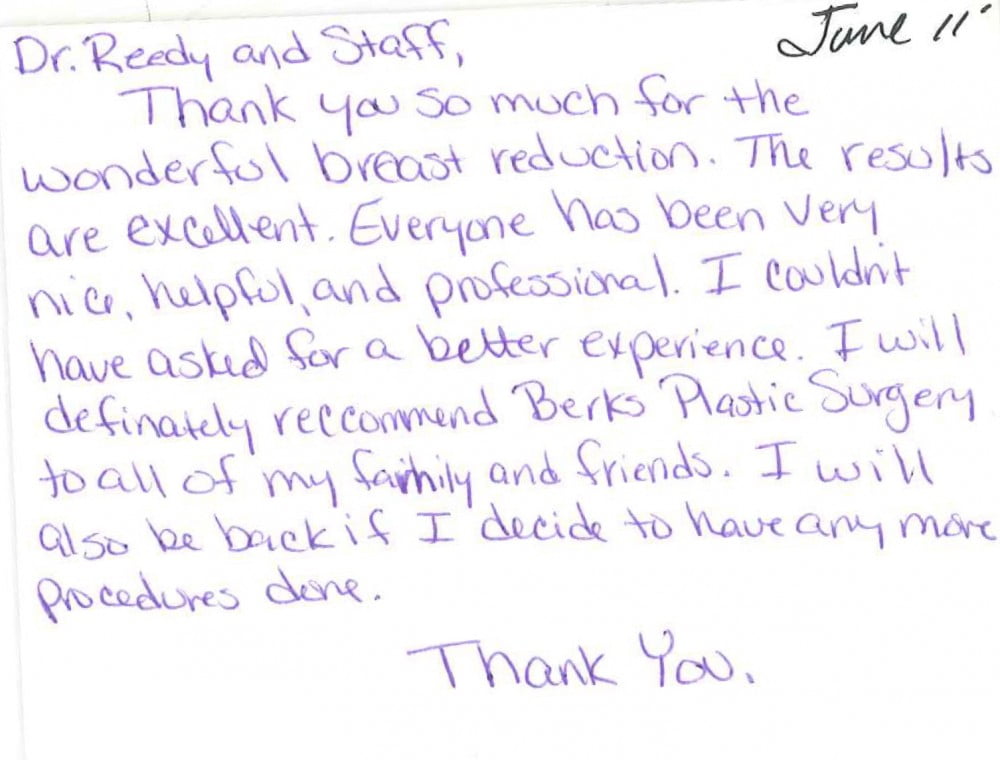 June 11'
Dr. Reedy and Staff,
Thank you so much for the
wonderful breast reduction. The results
are excellent. Everyone has been very
nice, helpful, and professional. I couldn't
have asked for a better experience. I will
definately reccommend Berks Plastic Surgery
to all of my family and friends. I will
also be back if I decide to have any more
procedures done.
Thank You.